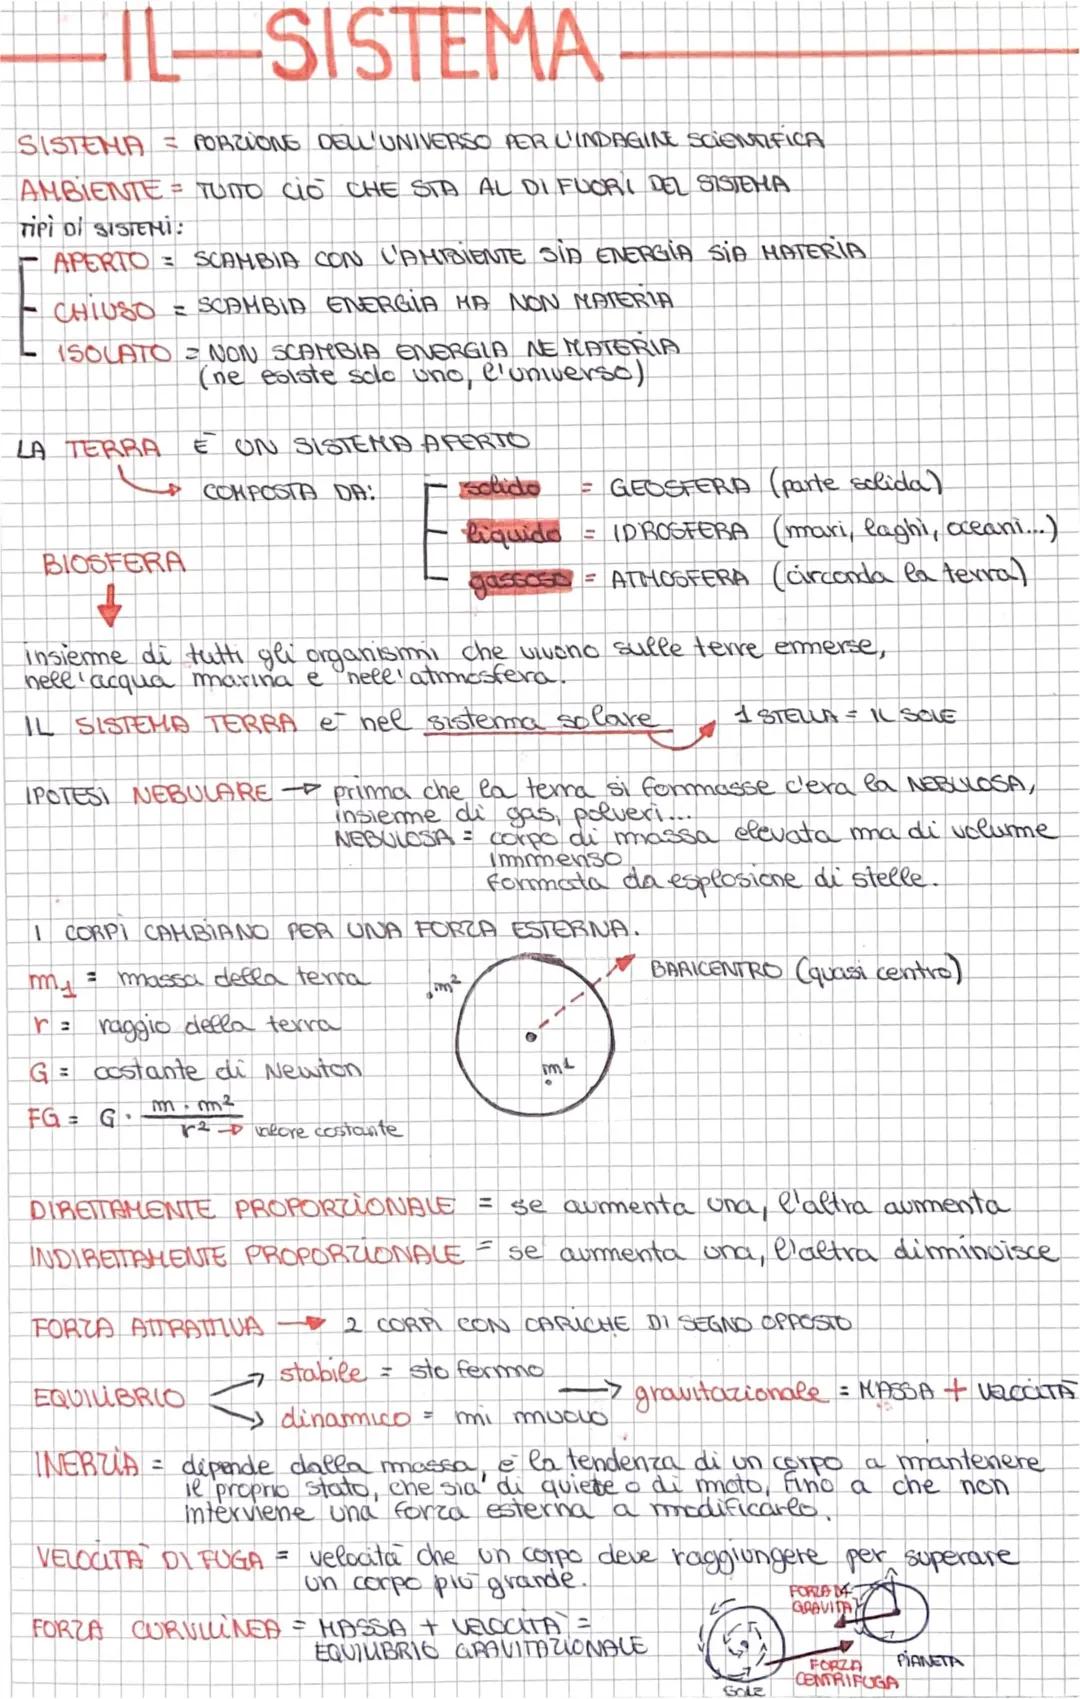 IL SISTEMA
SISTEMA = PORZIONE DELL'UNIVERSO PER L'INDAGINE SCIENTIFICA
AMBIENTE = TUTTO CIÒ CHE STA AL DI FUORI DEL SISTEMA
TIPI DI SISTEMI:
APERTO = SCAMBIA CON L'AMBIENTE SIA ENERGIA SIA MATERIA
CHIUSO = SCAMBIA ENERGIA MA NON MATERIA
ISOLATO = NON SCAMBIA ENERGIA NE MATERIA
(ne esiste solo uno, l'universo)
LA TERRA È UN SISTEMA APERTO
COMPOSTA DA:
solido = GEOSFERA (parte solida)
liquido = IDROSFERA (mari, laghi, oceani...)
gassoso = ATMOSFERA (circonda la terra)
BIOSFERA
insieme di tutti gli organismi che vivono sulle terre emerse,
nell'acqua marina e nell'atmosfera.
IL SISTEMA TERRA è nel sistema solare → 1 STELLA = IL SOLE
IPOTESI NEBULARE → prima che la terra si formasse c'era la NEBULOSA,
insieme di gas, polveri...
NEBULOSA = corpo di massa elevata ma di volume
immenso
formata da esplosione di stelle.
I CORPI CAMBIANO PER UNA FORZA ESTERNA.
m1 = massa della terra
r = raggio della terra
G = costante di Newton
FG = G · m · m² / r² → valore costante
.m²
m1
BARICENTRO (quasi centro)
DIRETTAMENTE PROPORZIONALE = se aumenta una, l'altra aumenta
INDIRETTAMENTE PROPORZIONALE = se aumenta una, l'altra diminuisce
FORZA ATTRATTIVA → 2 CORPI CON CARICHE DI SEGNO OPPOSTO
EQUILIBRIO
stabile = sto fermo
dinamico = mi muovo
→ gravitazionale = MASSA + VELOCITÀ
INERZIA = dipende dalla massa, è la tendenza di un corpo a mantenere
il proprio stato, che sia di quiete o di moto, fino a che non
interviene una forza esterna a modificarlo.
VELOCITÀ DI FUGA = velocità che un corpo deve raggiungere per superare
un corpo più grande.
FORZA CURVILINEA = MASSA + VELOCITÀ =
EQUILIBRIO GRAVITAZIONALE
FORZA DI
GRAVITÀ
PIANETA
FORZA
CENTRIFUGA
SOLE